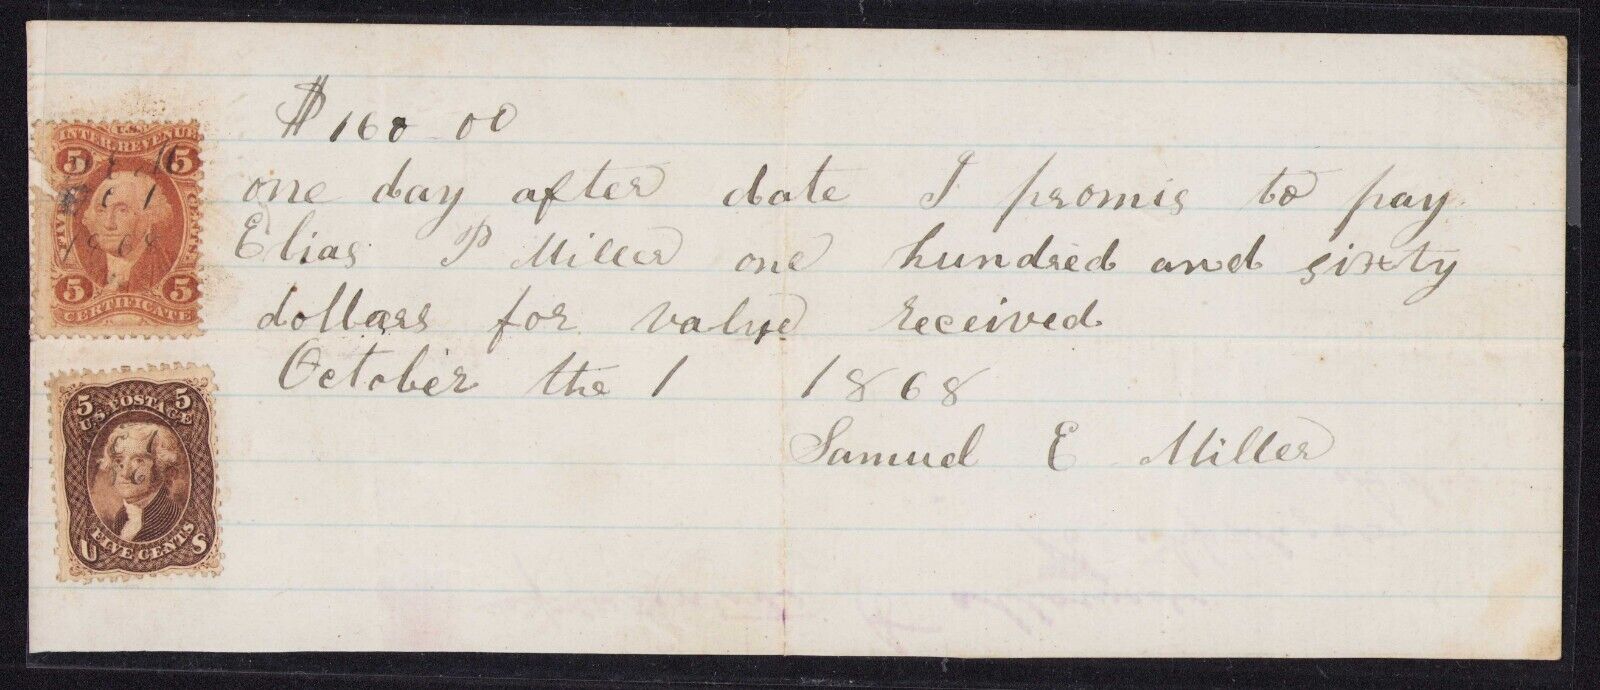 $160 00
one day after date I promis to pay
Elias P Miller one hundred and sixty
dollars for value received
October the 1 1868
Samuel E Miller
U.S.
INTER. REVENUE
5 5
FIVE CENTS
1868
5 5
CERTIFICATE
5 5
U.S. POSTAGE
FIVE CENTS
U S